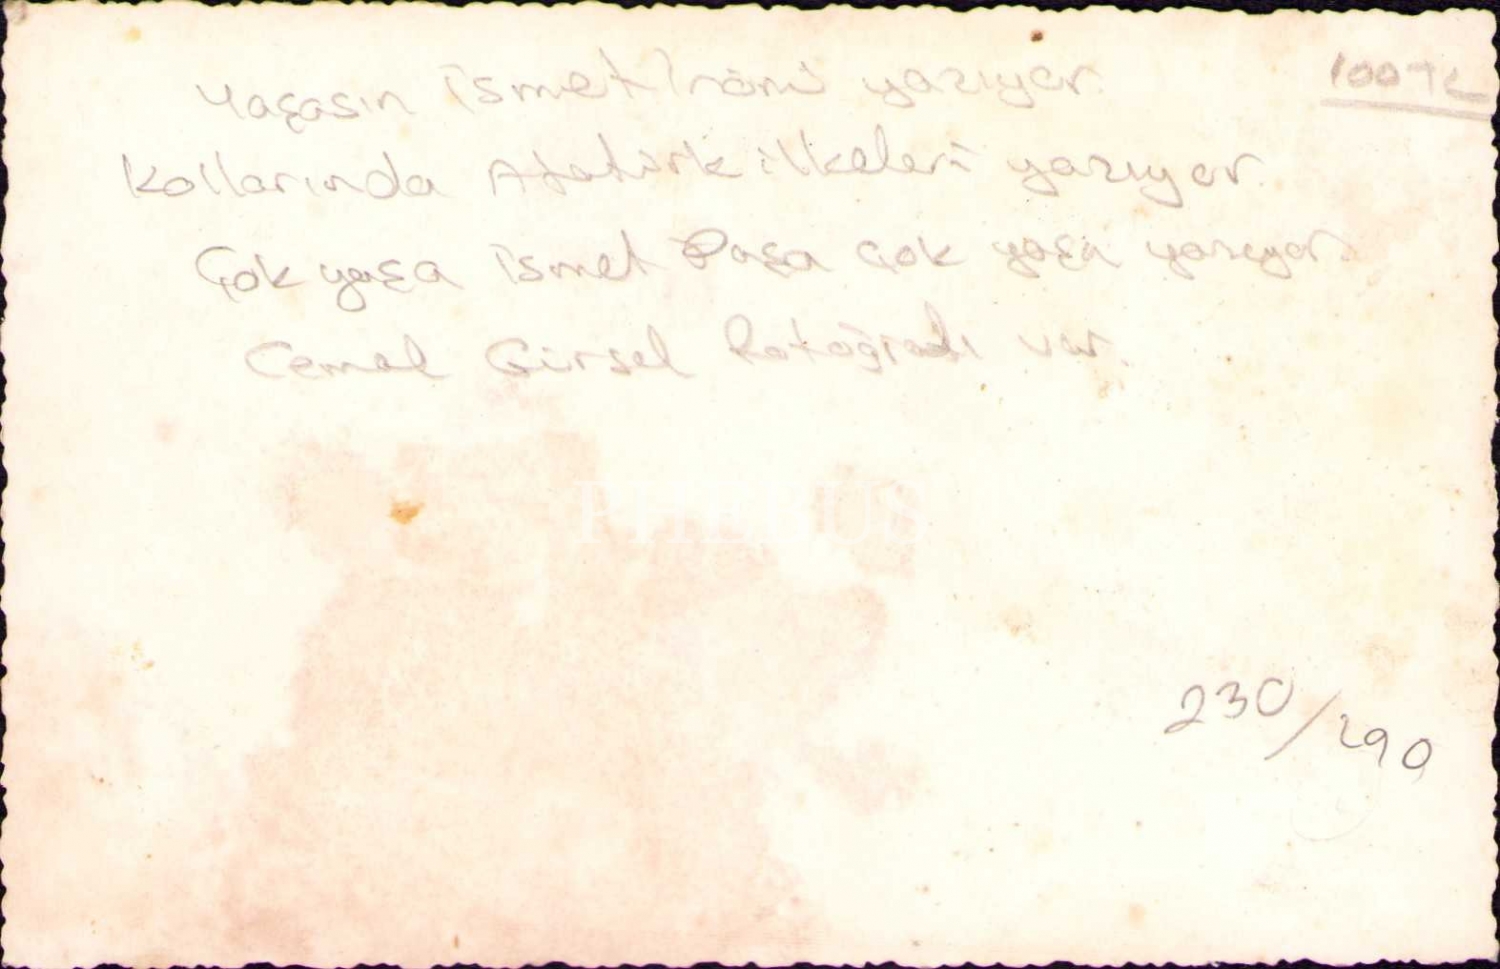 Yaşasın ismet İnönü yazıyor.
100 TL
Kollarında Atatürk ilkeleri yazıyor.
Çok yaşa ismet Paşa çok yaşa yazıyor.
Cemal Gürsel fotoğrafı var.
PHEBUS
230/290